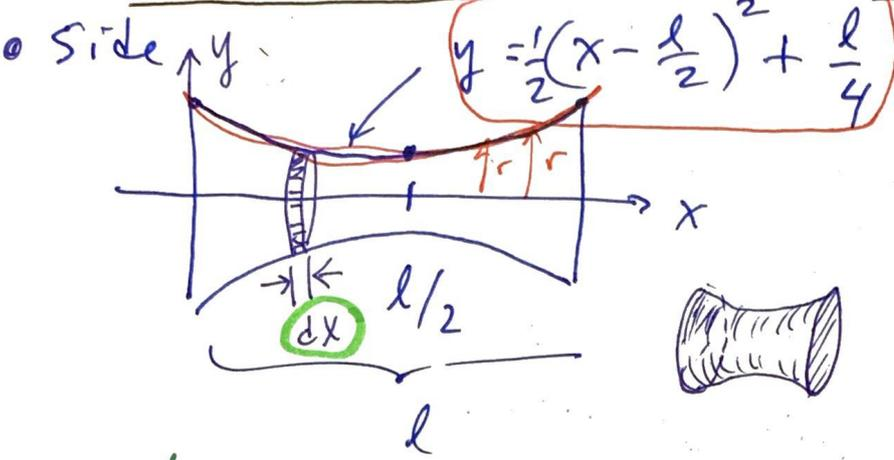 • Side y y = 1/2 (x - l/2)² + l/4
r r
x
l/2
dx
l